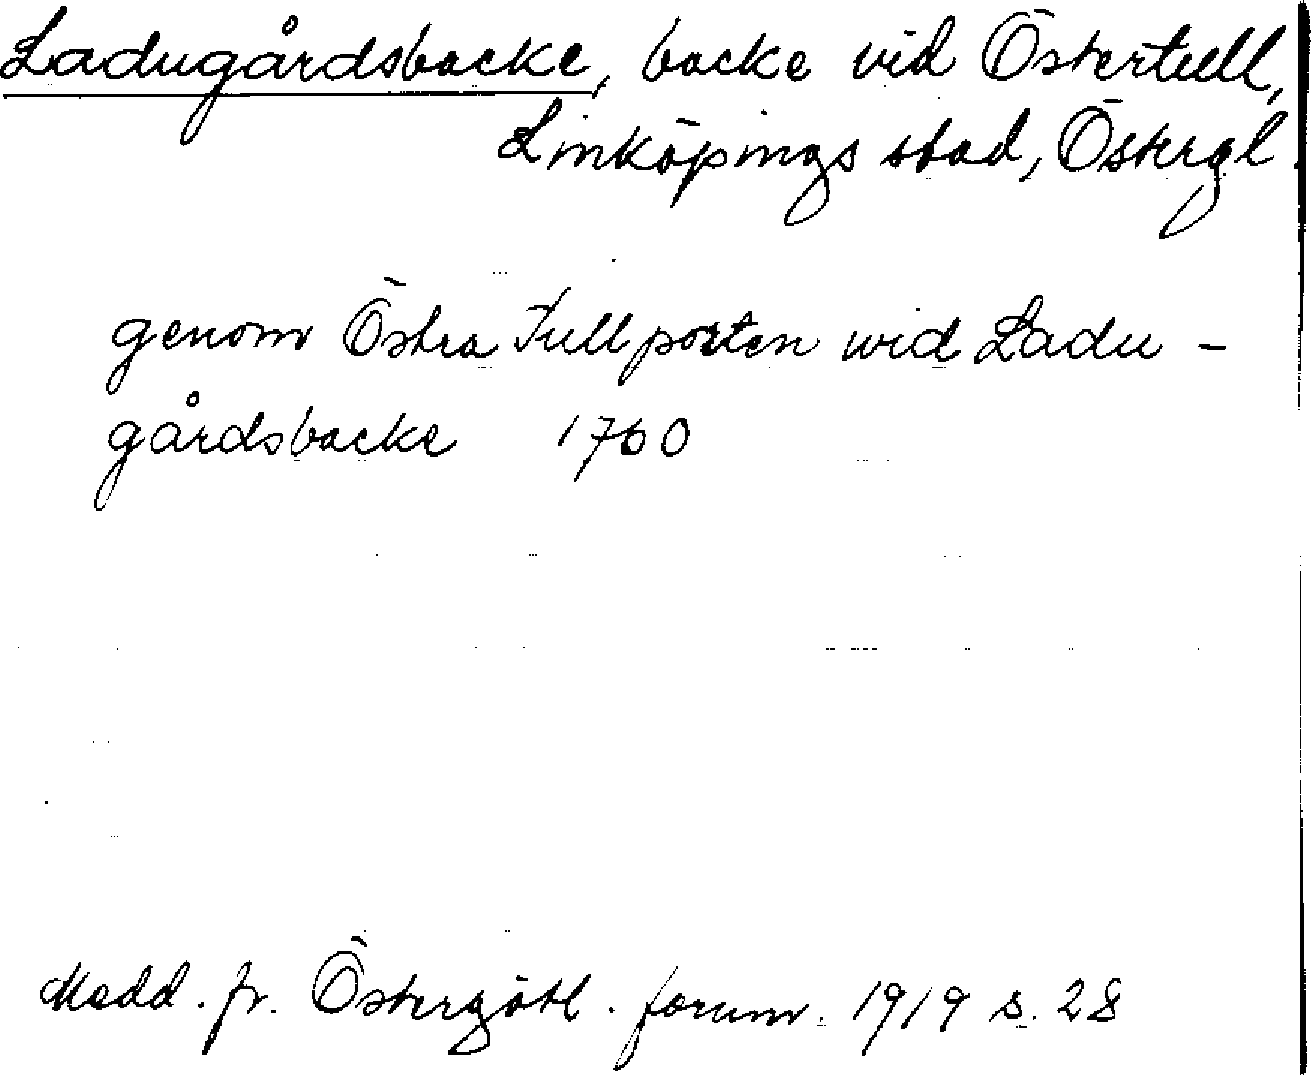 Ladugårdsbacke, backe vid Östertull,
Linköpings stad, Östergl.
genom Östra Tullporten wid Ladu-
gårdsbacke 1760
Medd. fr. Östergötl. fornm. 1919 s. 28